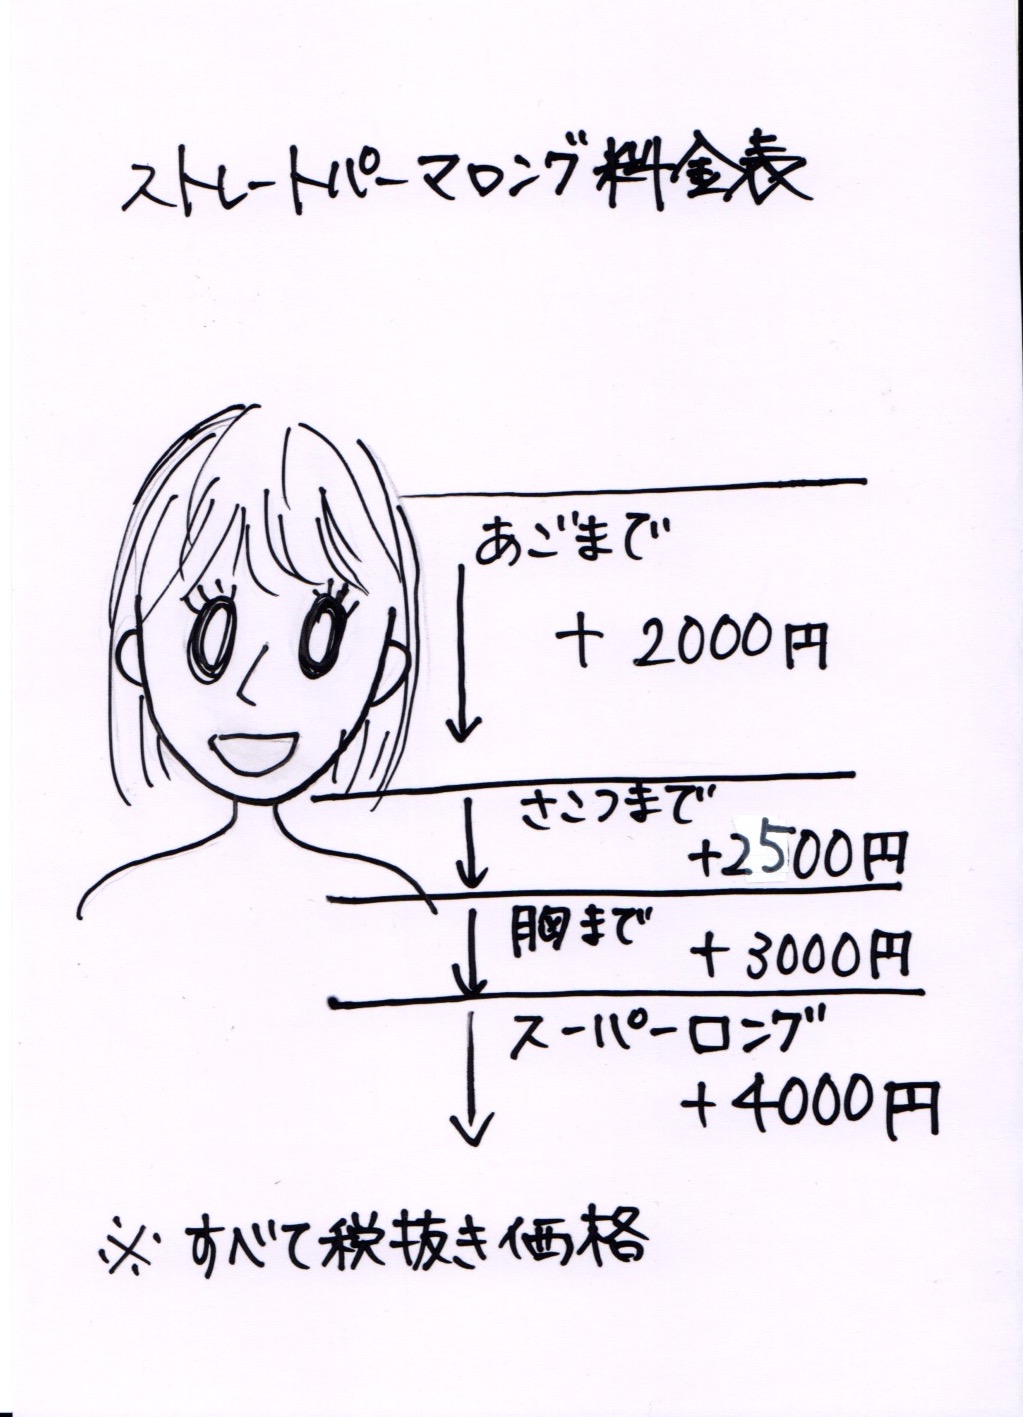 ストレートパーマロング料金表
あごまで
+ 2000円
さこつまで
+2500円
胸まで
+3000円
スーパーロング
+4000円
※ すべて税抜き価格